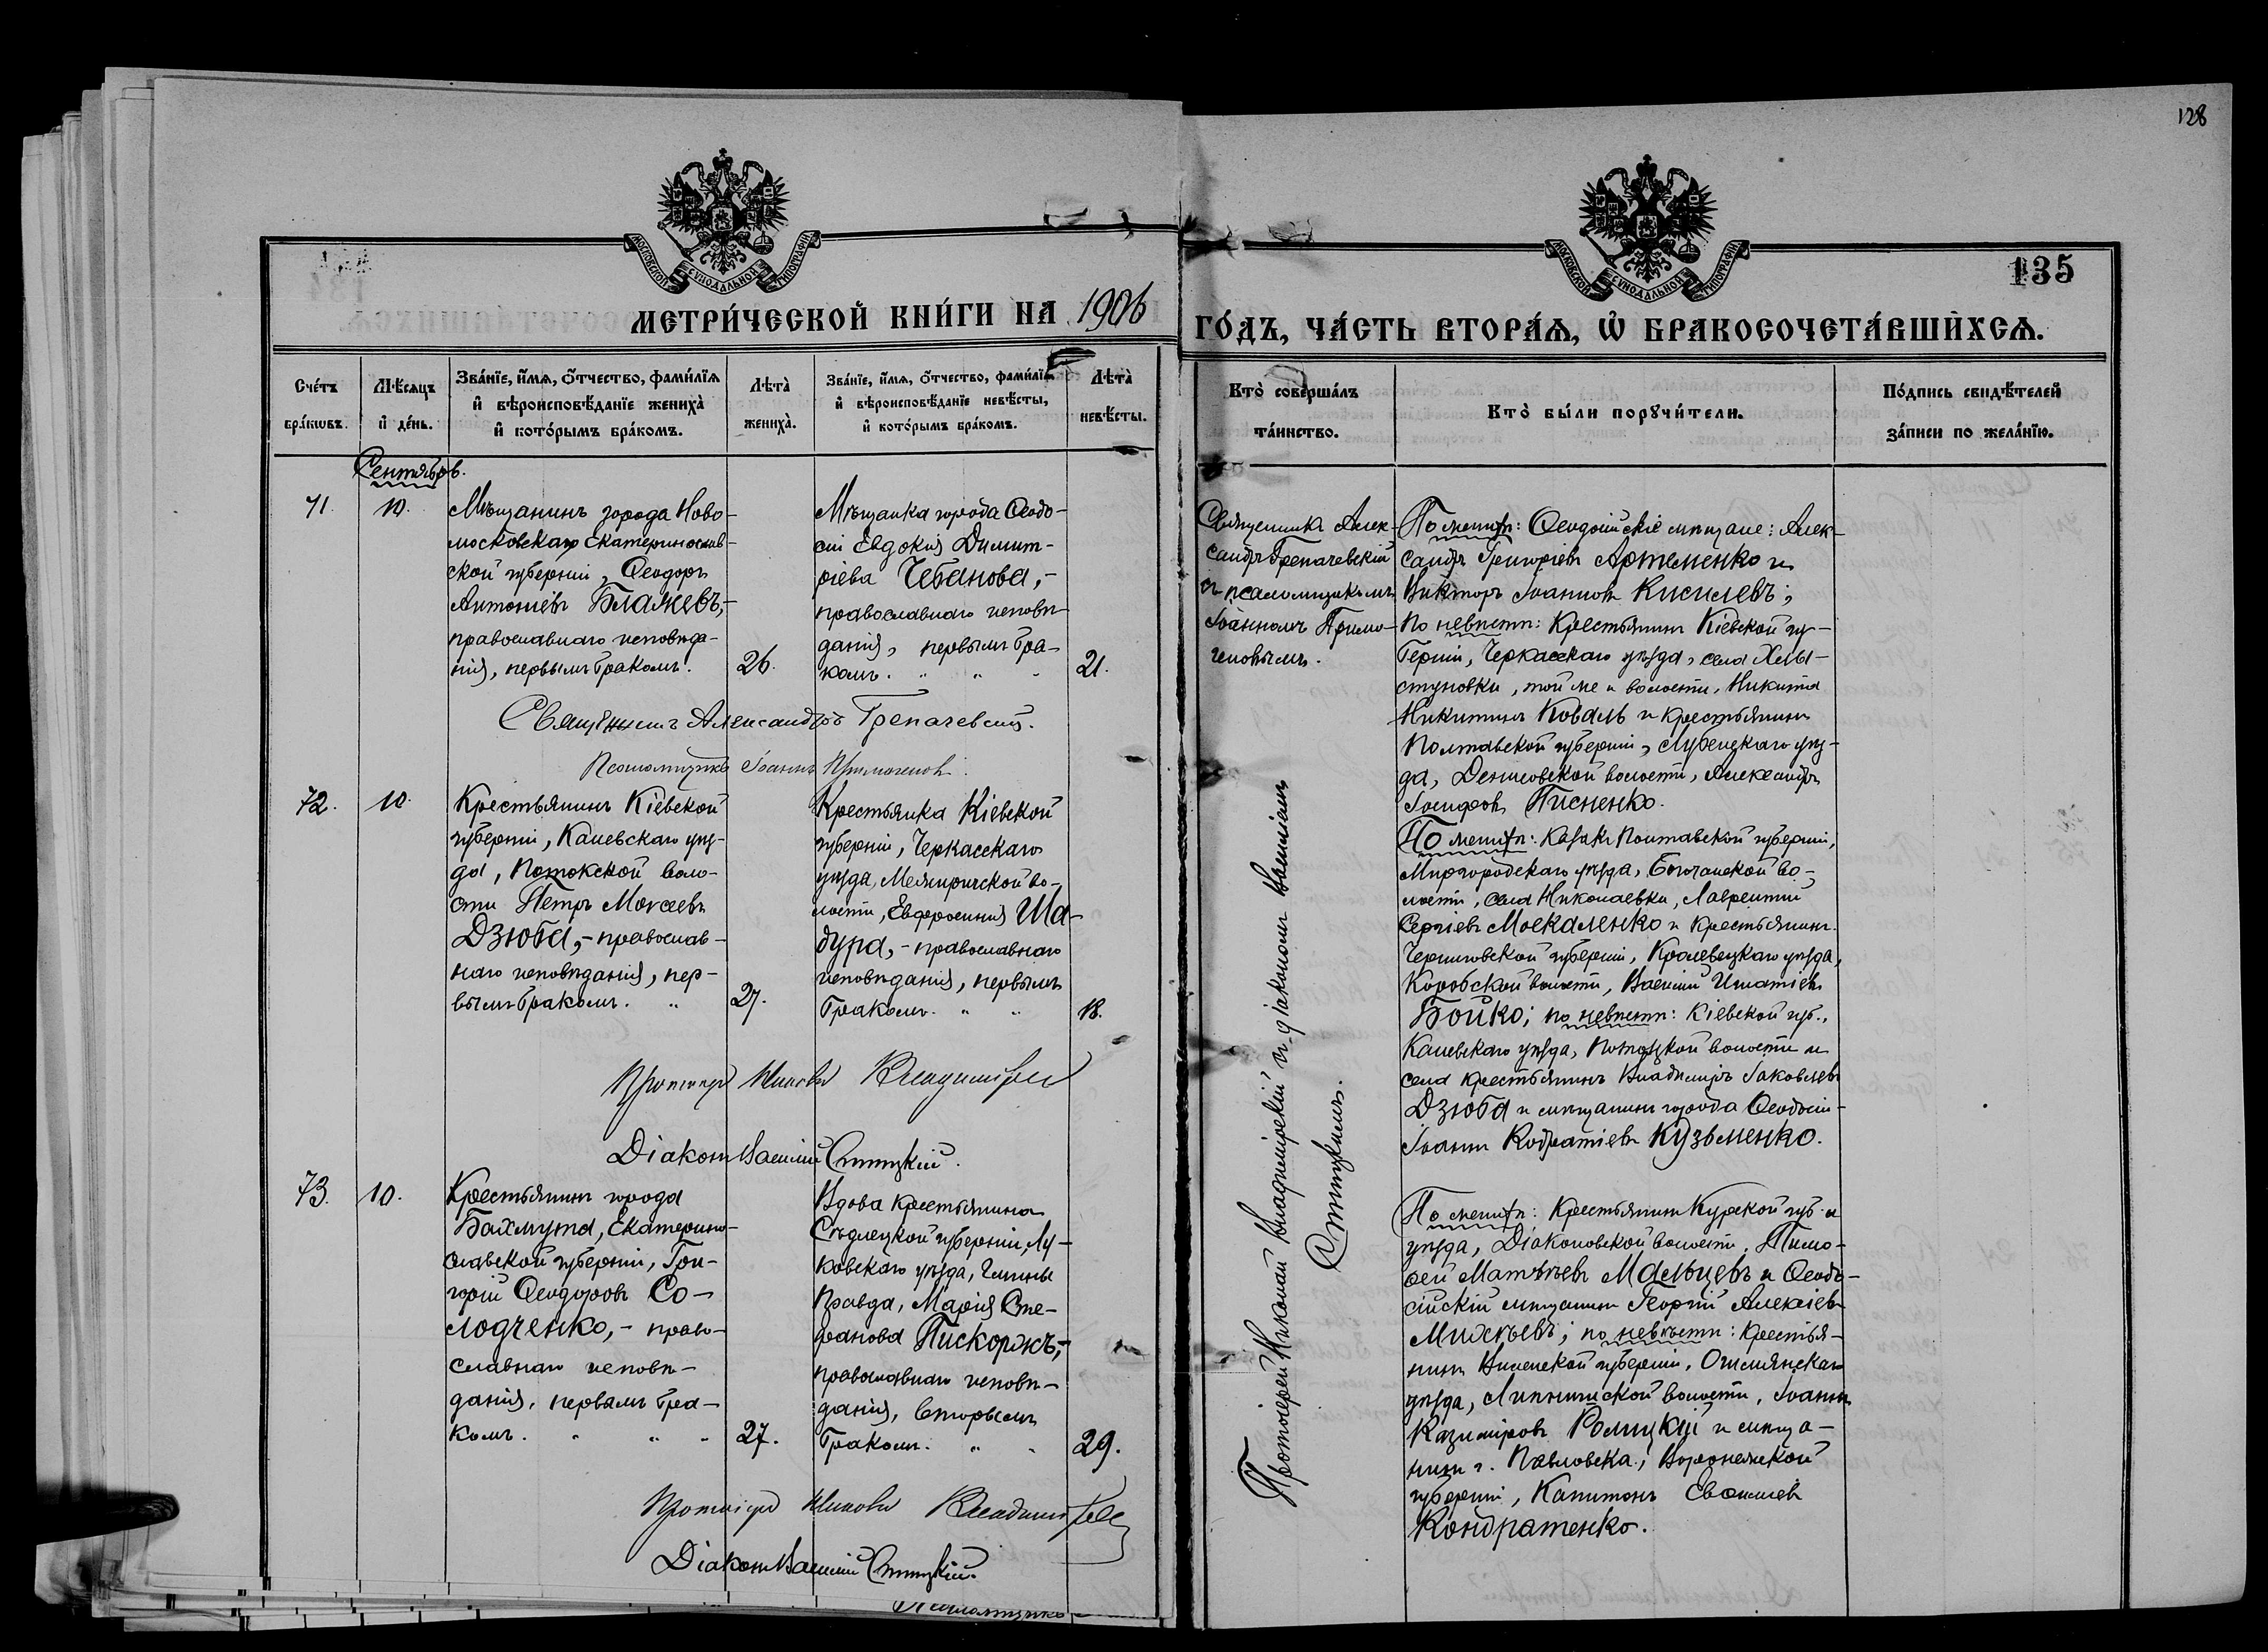 128
135
МОСКОВСКОЙ СѴНОДАЛЬНОЙ ТИПОГРАФІИ
МОСКОВСКОЙ СѴНОДАЛЬНОЙ ТИПОГРАФІИ
МЕТРИ́ЧЕСКОЙ КНИ́ГИ НА 1906
ГО́ДЪ, ЧА́СТЬ ВТОРА́Ѧ, Ѡ БРАКОСОЧЕТА́ВШИХСѦ.
Сче́тъ бра́кѡвъ.
Мѣ́сяцъ и де́нь.
Зва́нїе, и́мѧ, о́тчество, фами́лїѧ и вѣроисповѣ́данїе жениха̀ и кото́рымъ бра́комъ.
Лѣта̀ жениха̀.
Зва́нїе, и́мѧ, о́тчество, фами́лїѧ и вѣроисповѣ́данїе невѣ́сты, и кото́рымъ бра́комъ.
Лѣта̀ невѣ́сты.
Кто̀ соверша́лъ та́инство.
Кто̀ бы́ли порꙋчи́тели.
По́дпись свидѣ́телей за́писи по жела́нїю.
Сентябрь.
71.
10.
Мѣщанинъ города Ново-
московска Екатеринослав-
ской губерніи, Ѳеодоръ
Антоніевъ Блажевъ,-
православнаго исповѣда-
нія, первымъ бракомъ.
26.
Мѣщанка города Ѳеодо-
сіи Евдокія Димит-
ріева Чебанова,-
православнаго исповѣ-
данія, первымъ бра-
комъ. " "
21.
Священникъ Алек-
сандръ Трепачевскій
съ псаломщикомъ
Іоанномъ Примо-
геновымъ.
По женихѣ: Ѳеодосійскіе мѣщане: Алек-
сандръ Григорьевъ Артеменко и
Викторъ Іоанновъ Кисилевъ;
по невѣстѣ: Крестьянинъ Кіевской гу-
берніи, Черкасскаго уѣзда, села Хлы-
стуновки, той же и волости, Никита
Никитинъ Коваль и крестьянинъ
Полтавской губерніи, Лубенскаго уѣз-
да, Денисовской волости, Александръ
Іосифовъ Писненко.
Священникъ Александръ Трепачевскій.
Псаломщикъ Іоаннъ Примогеновъ.
72.
10.
Крестьянинъ Кіевской
губерніи, Каневскаго уѣз-
да, Потокской воло-
сти Петръ Моисеевъ
Дзюба,- православ-
наго исповѣданія, пер-
вымъ бракомъ. "
27.
Крестьянка Кіевской
губерніи, Черкасскаго
уѣзда, Межиричской во-
лости, Евфросинія Ша-
дура,- православнаго
исповѣданія, первымъ
бракомъ. " "
18.
Протоіерей Николай Владимірскій и діаконъ Василіемъ
Стницкимъ.
По женихѣ: Казакъ Полтавской губерніи,
Миргородскаго уѣзда, Богочанской во-
лости, села Николаевки, Лаврентій
Сергіевъ Москаленко и крестьянинъ
Черниговской губерніи, Кролевецкаго уѣзда,
Коробской волости, Василій Игнатіевъ
Бойко; по невѣстѣ: Кіевской губ.,
Каневскаго уѣзда, Потоцкой волости и
села крестьянинъ Владиміръ Іаковлевъ
Дзюба и мѣщанинъ города Ѳеодосіи-
Іоаннъ Кодратіевъ Кузьменко.
Протоіерей Николай Владимірскій
Діаконъ Василій Стницкій.
73.
10.
Крестьянинъ города
Бахмута, Екатерино-
славской губерніи, Гри-
горій Ѳеодоровъ Со-
лодченко,- право-
славнаго исповѣ-
данія, первымъ бра-
комъ. " " "
27.
Вдова крестьянина
Сѣдлецкой губерніи, Лу-
ковскаго уѣзда, Гмины
Правда, Марія Сте-
фанова Пискоржъ,-
православнаго исповѣ-
данія, вторымъ
бракомъ. " "
29.
По женихѣ: Крестьянинъ Курской губ. и
уѣзда, Діаконовской волости, Тимо-
ѳей Матѳѣевъ Мальцевъ и Ѳеодо-
сійскій мѣщанинъ Георгій Алексіевъ
Михѣевъ; по невѣстѣ: крестья-
нинъ Виленской губерніи, Ошмянскаго
уѣзда, Липнишской волости, Іоаннъ
Казиміровъ Ромицкій и мѣща-
нинъ г. Павловска, Воронежской
губерніи, Капитонъ
Кондратенко.
Протоіерей Николай Владимірскій
Діаконъ Василій Стницкій.
Псаломщикъ